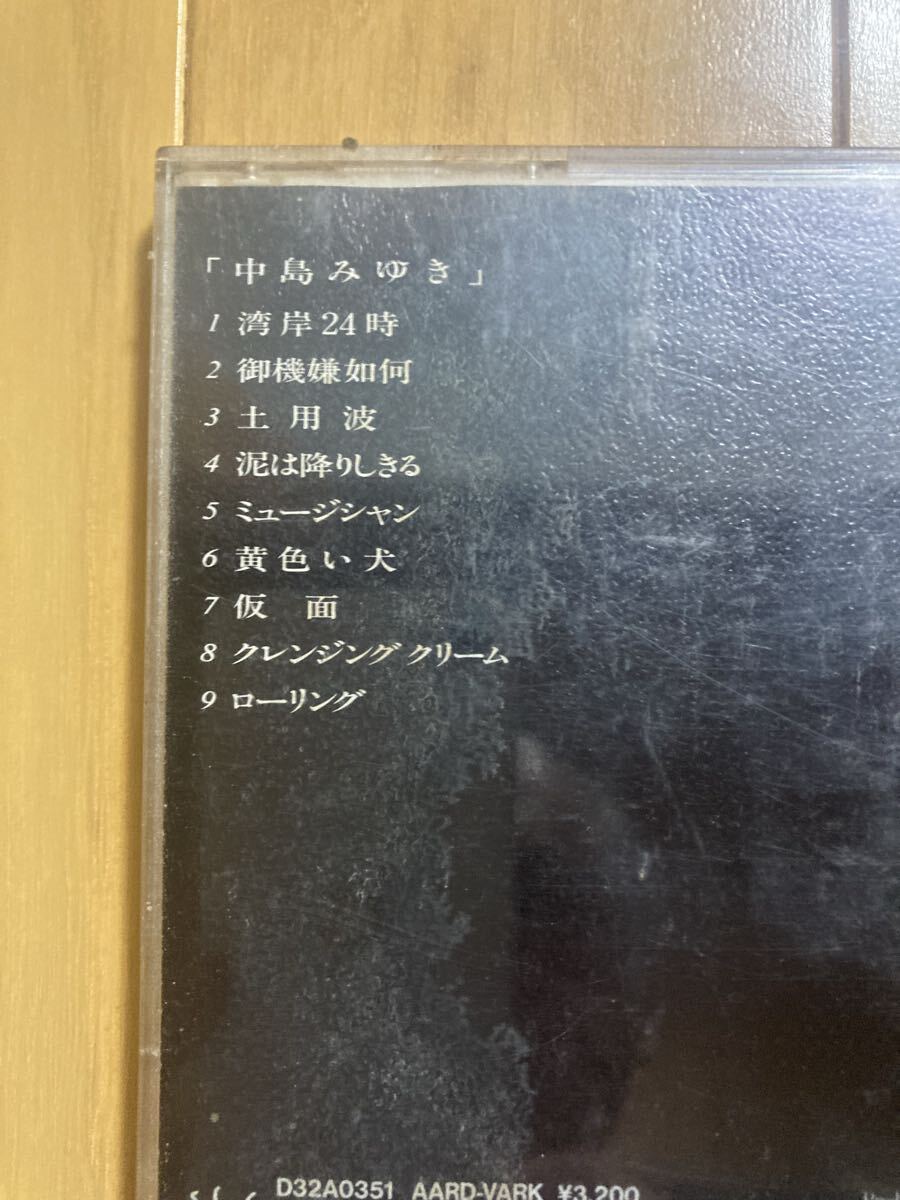 「中島みゆき」
1 湾岸24時
2 御機嫌如何
3 土用波
4 泥は降りしきる
5 ミュージシャン
6 黄色い犬
7 仮面
8 クレンジング クリーム
9 ローリング
D32A0351 AARD-VARK ¥3,200